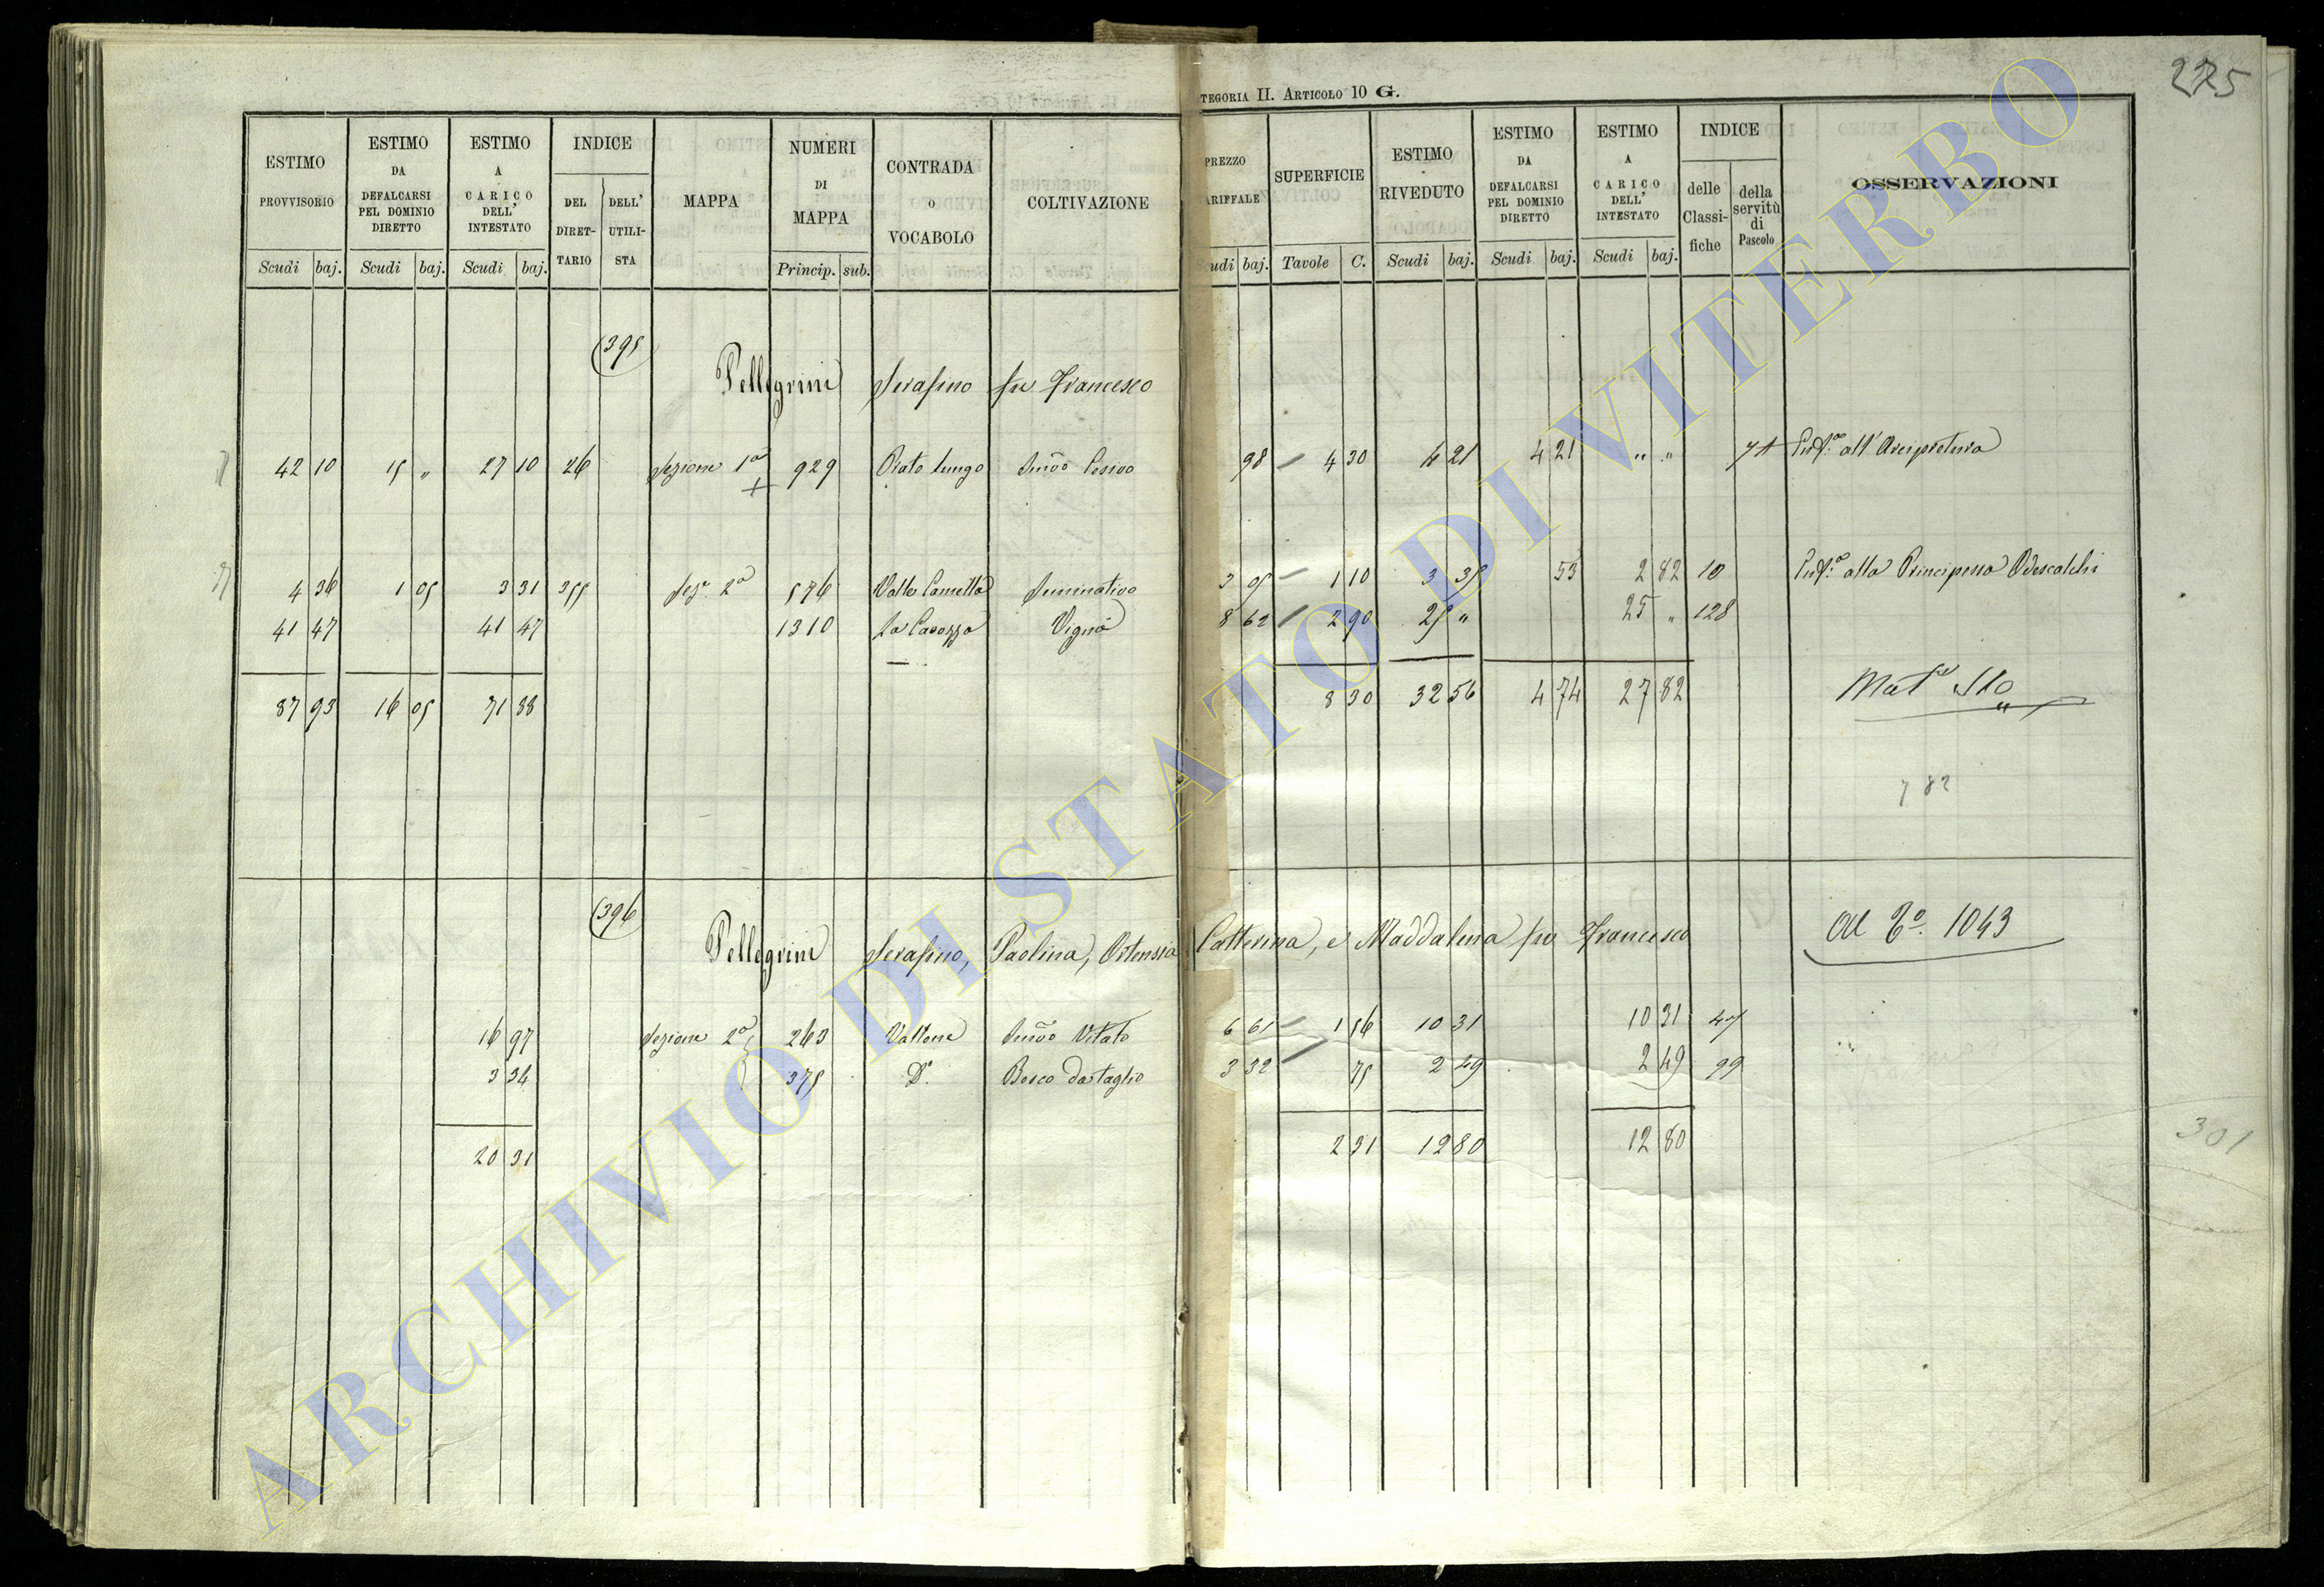 225
TEGORIA II. ARTICOLO 10 G.
ESTIMO PROVVISORIO
ESTIMO DA DEFALCARSI PEL DOMINIO DIRETTO
ESTIMO A CARICO DELL' INTESTATO
INDICE
DEL DIRETTARIO
DELL' UTILISTA
MAPPA
NUMERI DI MAPPA
CONTRADA O VOCABOLO
COLTIVAZIONE
PREZZO ARIFFALE
SUPERFICIE
ESTIMO RIVEDUTO
ESTIMO DA DEFALCARSI PEL DOMINIO DIRETTO
ESTIMO A CARICO DELL' INTESTATO
INDICE
delle Classifiche
della servitù di Pascolo
OSSERVAZIONI
Scudi baj. Scudi baj. Scudi baj. Princip. sub.
udi baj. Tavole C. Scudi baj. Scudi baj. Scudi baj.
(395)
Pellegrini Serafino fu Francesco
42 10 15 „ 27 10 26 Sezione 1ª 929 Prato lungo 98 4 30 4 21 4 21 „ „ all'Arcipretura
4 36 1 05 3 31 355 Sezª 2ª 576 Valle Cametta Seminativo 3 05 1 10 3 35 53 2 82 10 alla Principessa Odescalchi
41 47 41 47 1310 La Casozza Vigna 8 62 2 90 25 „ 25 „ 128
87 93 16 05 71 88 8 30 32 56 4 74 27 82
782
(396)
Pellegrini Serafino, Paolina, Ortensia Catterina, e Maddalena fu Francesco
Al 1043
16 97 Sezione 2ª 263 Vallone Semvo Vitato 6 61 1 56 10 31 10 31 47
3 34 375 Dº Bosco da taglio 3 32 75 2 49 2 49 99
20 31 2 31 12 80 12 80
301
ARCHIVIO DI STATO DI VITERBO